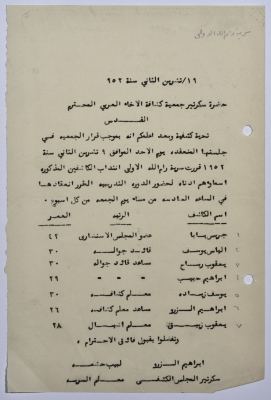 ١٦/تشرين الثاني سنة ٩٥٢
حضرة سكرتير جمعية كشافة الاخاء العربي المحترم
القدس
تحية كشفية وبعد اعلمكم انه بموجب قرار الجمعيه في
جلستها المنعقده يوم الاحد الموافق ٩ تشرين الثاني سنة
١٩٥٢ قررت سرية رام الله الاولى انتداب الكاشفين المذكوره
اسماؤهم ادناه لحضور الدوره التدريبيه المقرر انعقادها
في الساعه السادسه من مساء يوم الجمعه من كل اسبوع .
اسم الكاشف الرتبه العمر
جريس بابا عضو المجلس الاستشاري ٤٢
الياس يوسف قائد جواله ٣٠
يعقوب رباح مساعد قائد جواله ٣٠
ابراهيم حبيب " " " ٢٩
يوسف زياده معلم كشافه ٣٠
ابراهيم الزرو مساعد معلم كشافه ٢٦
يعقوب معلم اشبال ٢٨
وتفضلوا بقبول فائق الاحترام ،
ابراهيم الزرو لبيب
سكرتير المجلس الكشفي معلم السريه